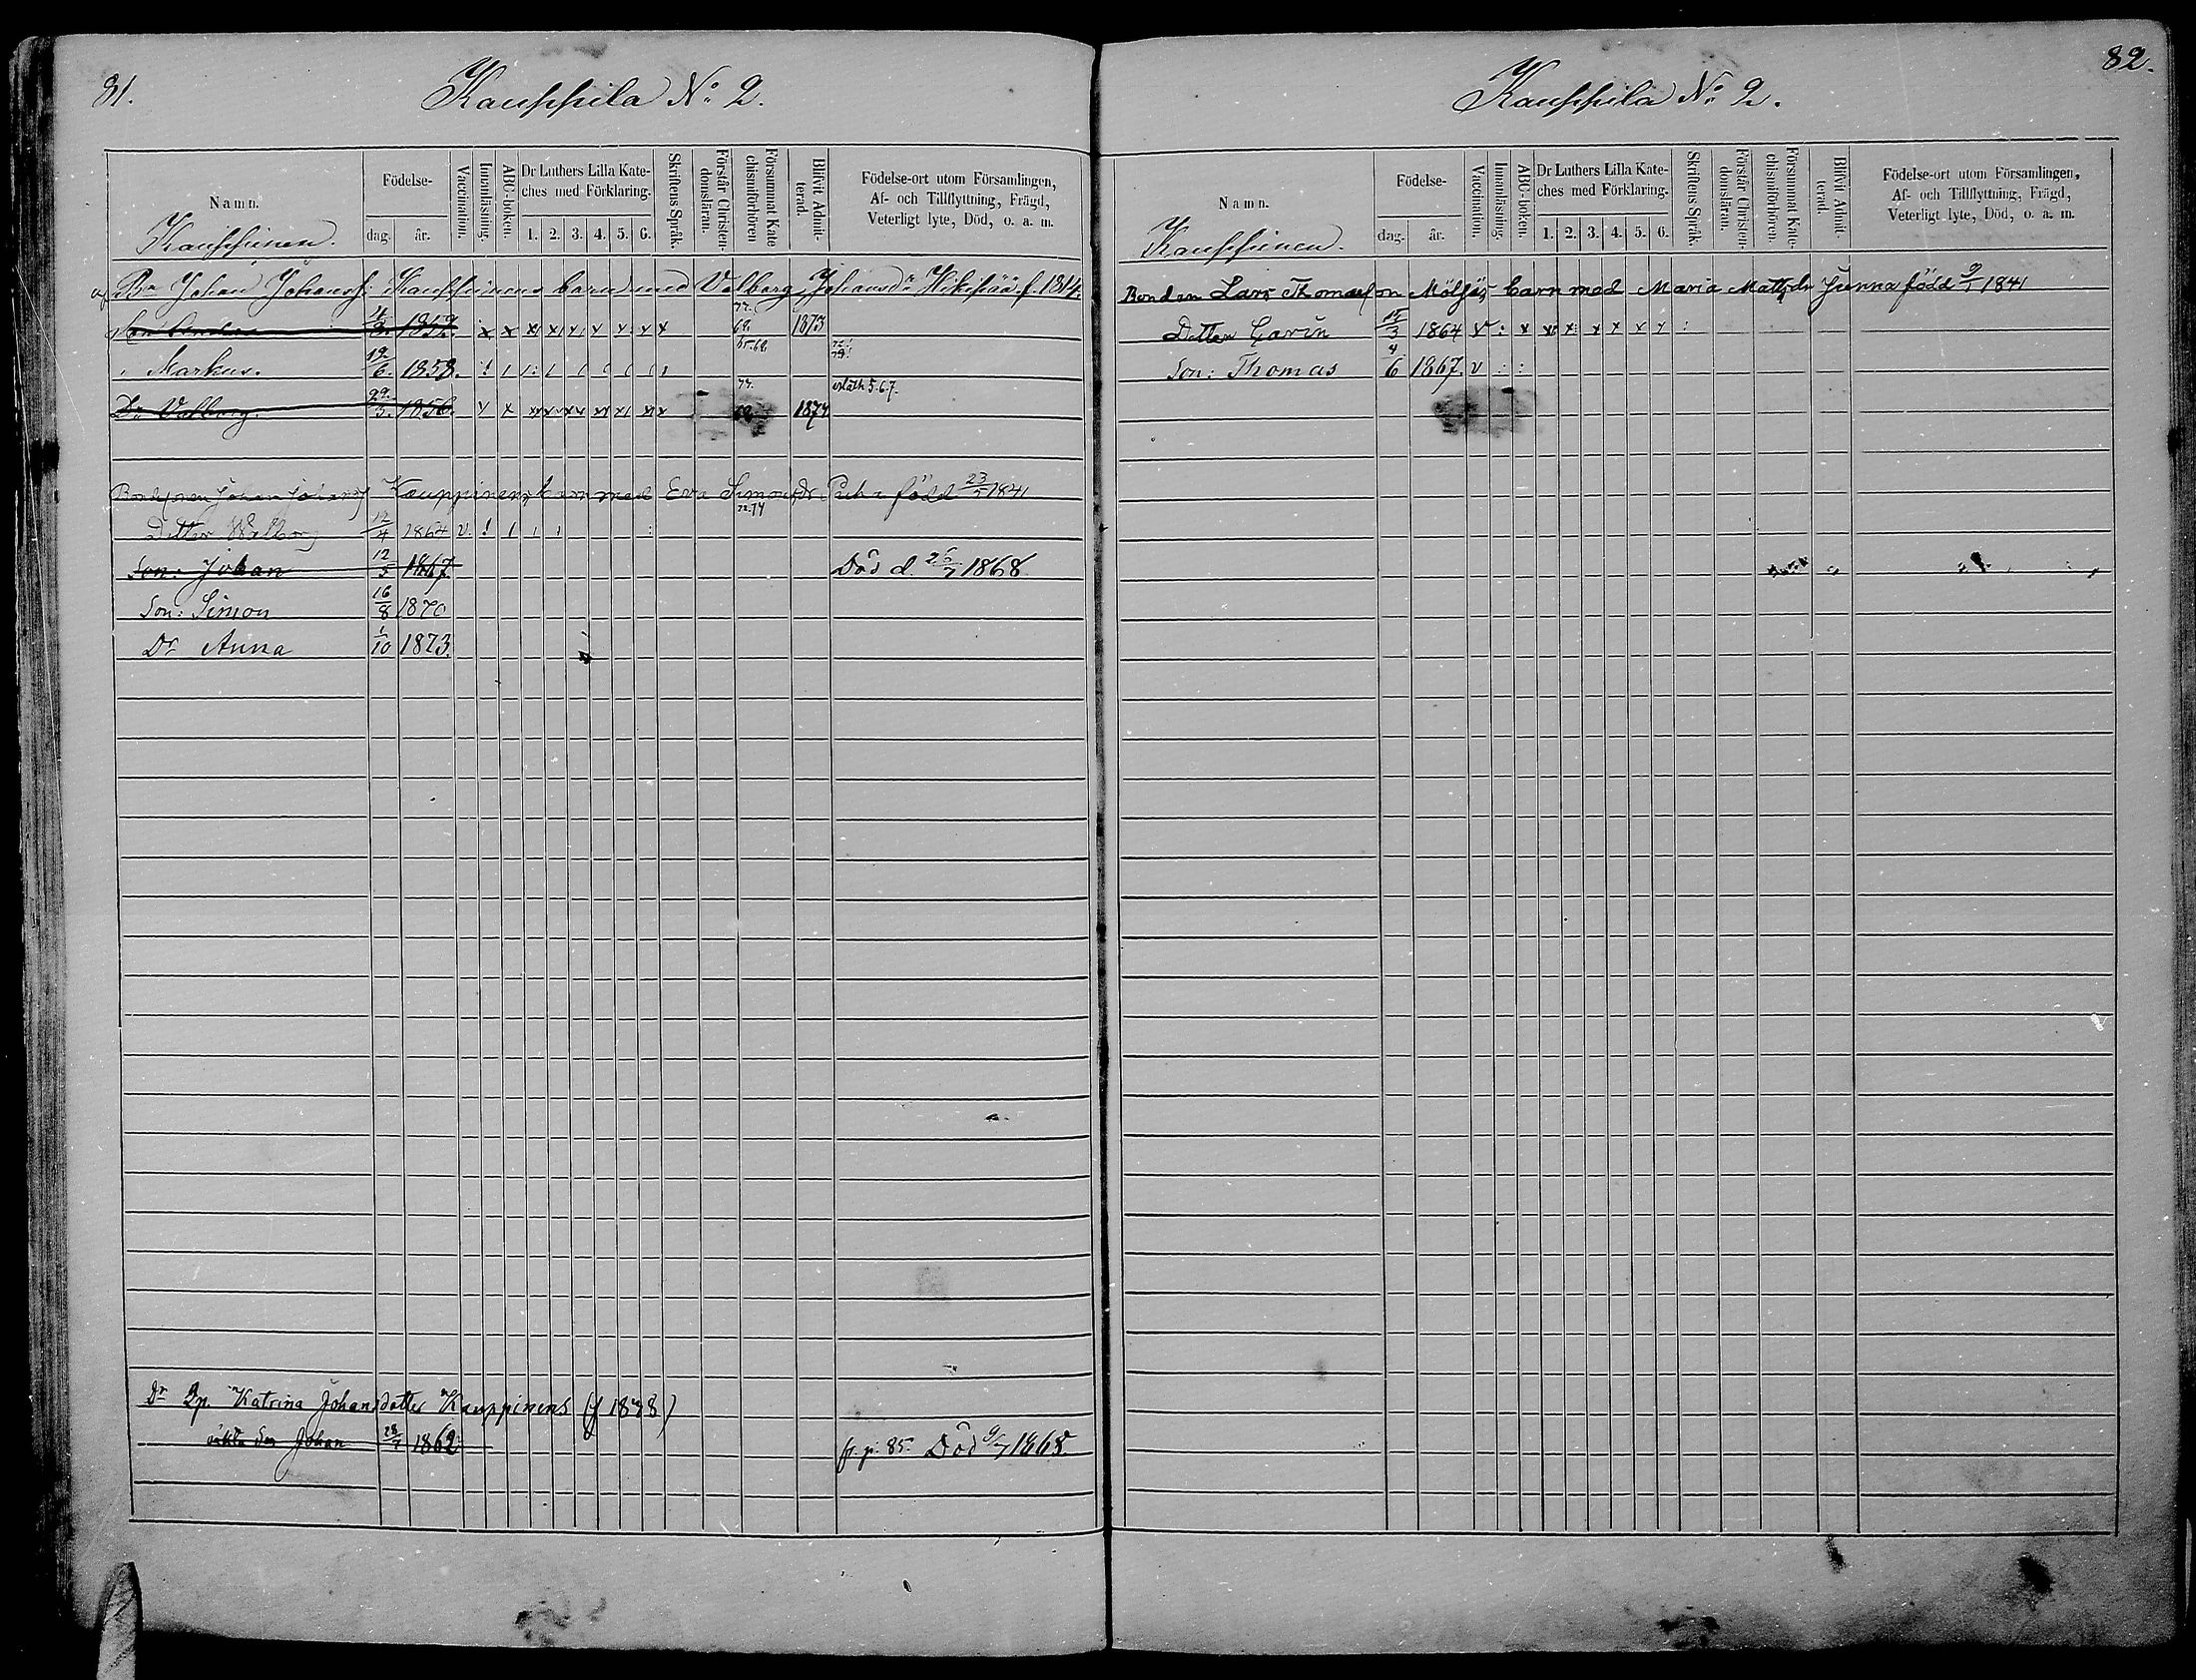 81.
Kauppila No 2.
Namn.
Födelse-
dag.
år.
Vaccination.
Innanläsning.
ABC-boken.
Dr Luthers Lilla Kate-
ches med Förklaring.
1. 2. 3. 4. 5. 6.
Skriftens Språk.
Förstår Christen-
domsläran.
Försummat Kate
chismiförhören
Blifvit Admit-
terad.
Födelse-ort utom Församlingen,
Af- och Tillflyttning, Frägd,
Veterligt lyte, Död, o. a. m.
Kauppinen.
Johan Johanss: Kauppinens barn med Valborg Johansdr Hikipää f. 1814.
1852. x x x x x x x x x 1873
Markus. 19/6 1858.
Dr Valborg. 22/3 1856. 1874
Bondesonen Johan Johanss Kauppinens barn med Eva Simonsdr Puha född 23/5 1841
Dotter Walborg 12/4 1864 v.
Son: Johan 12/5 1867. Död d. 25/7 1868.
Son: Simon 16/8 1870
Dr Anna 1/10 1873.
Dr Qp. Katrina Johansdotter Kauppinens (f 1838)
oäkta Son Johan 28/7 1862 fr. p. 85. Död 9/7 1868.
82.
Kauppila No 2.
Namn.
Födelse-
dag.
år.
Vaccination.
Innanläsning.
ABC-boken.
Dr Luthers Lilla Kate-
ches med Förklaring.
1. 2. 3. 4. 5. 6.
Skriftens Språk.
Förstår Christen-
domsläran.
Försummat Kate-
chismiförhören.
Blifvit Admit-
terad.
Födelse-ort utom Församlingen,
Af- och Tillflyttning, Frägd,
Veterligt lyte, Död, o. a. m.
Kauppinen.
Bonden Lars Thomasson Mölsäs barn med Maria Mattsdr Junna född 9/1 1841
Dotter Carin 1864 v : x x x x x x x :
Son: Thomas 4/6 1867. v : :